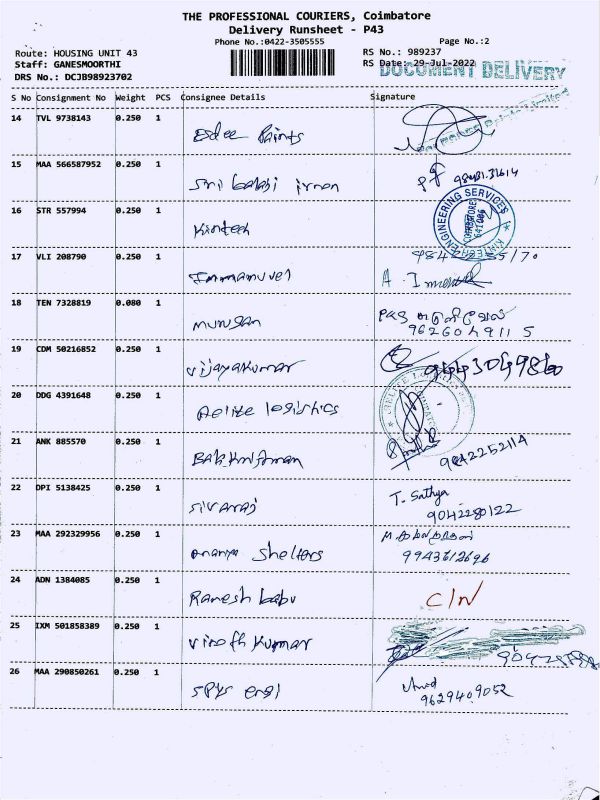 THE PROFESSIONAL COURIERS, Coimbatore
Delivery Runsheet - P43
Phone No.:0422-3505555
Page No.:2
Route: HOUSING UNIT 43
RS No.: 989237
Staff: GANESMOORTHI
RS Date: 29-Jul-2022
DOCUMENT DELIVERY
DRS No.: DCJB98923702
S No Consignment No Weight PCS Consignee Details Signature
14 TVL 9738143 0.250 1 Esdee Paints
15 MAA 566587952 0.250 1 Sri balaji
16 STR 557994 0.250 1 Kintech
KINTECH ENGINEERING SERVICES
COIMBATORE
17 VLI 208790 0.250 1 Immanuvel
18 TEN 7328819 0.080 1 murugan
9626049115
19 CDM 50216852 0.250 1 vijayakumar
20 DDG 4391648 0.250 1 Aelite logistics
21 ANK 885570 0.250 1
9842252114
22 DPI 5138425 0.250 1 sivaraj T. Sathya
9042280122
23 MAA 292329956 0.250 1 ananya shelters
9943612696
24 ADN 1384085 0.250 1 Ramesh babu C/N
25 IXM 501858389 0.250 1 vinoth kumar
26 MAA 290850261 0.250 1 engi
9629409052